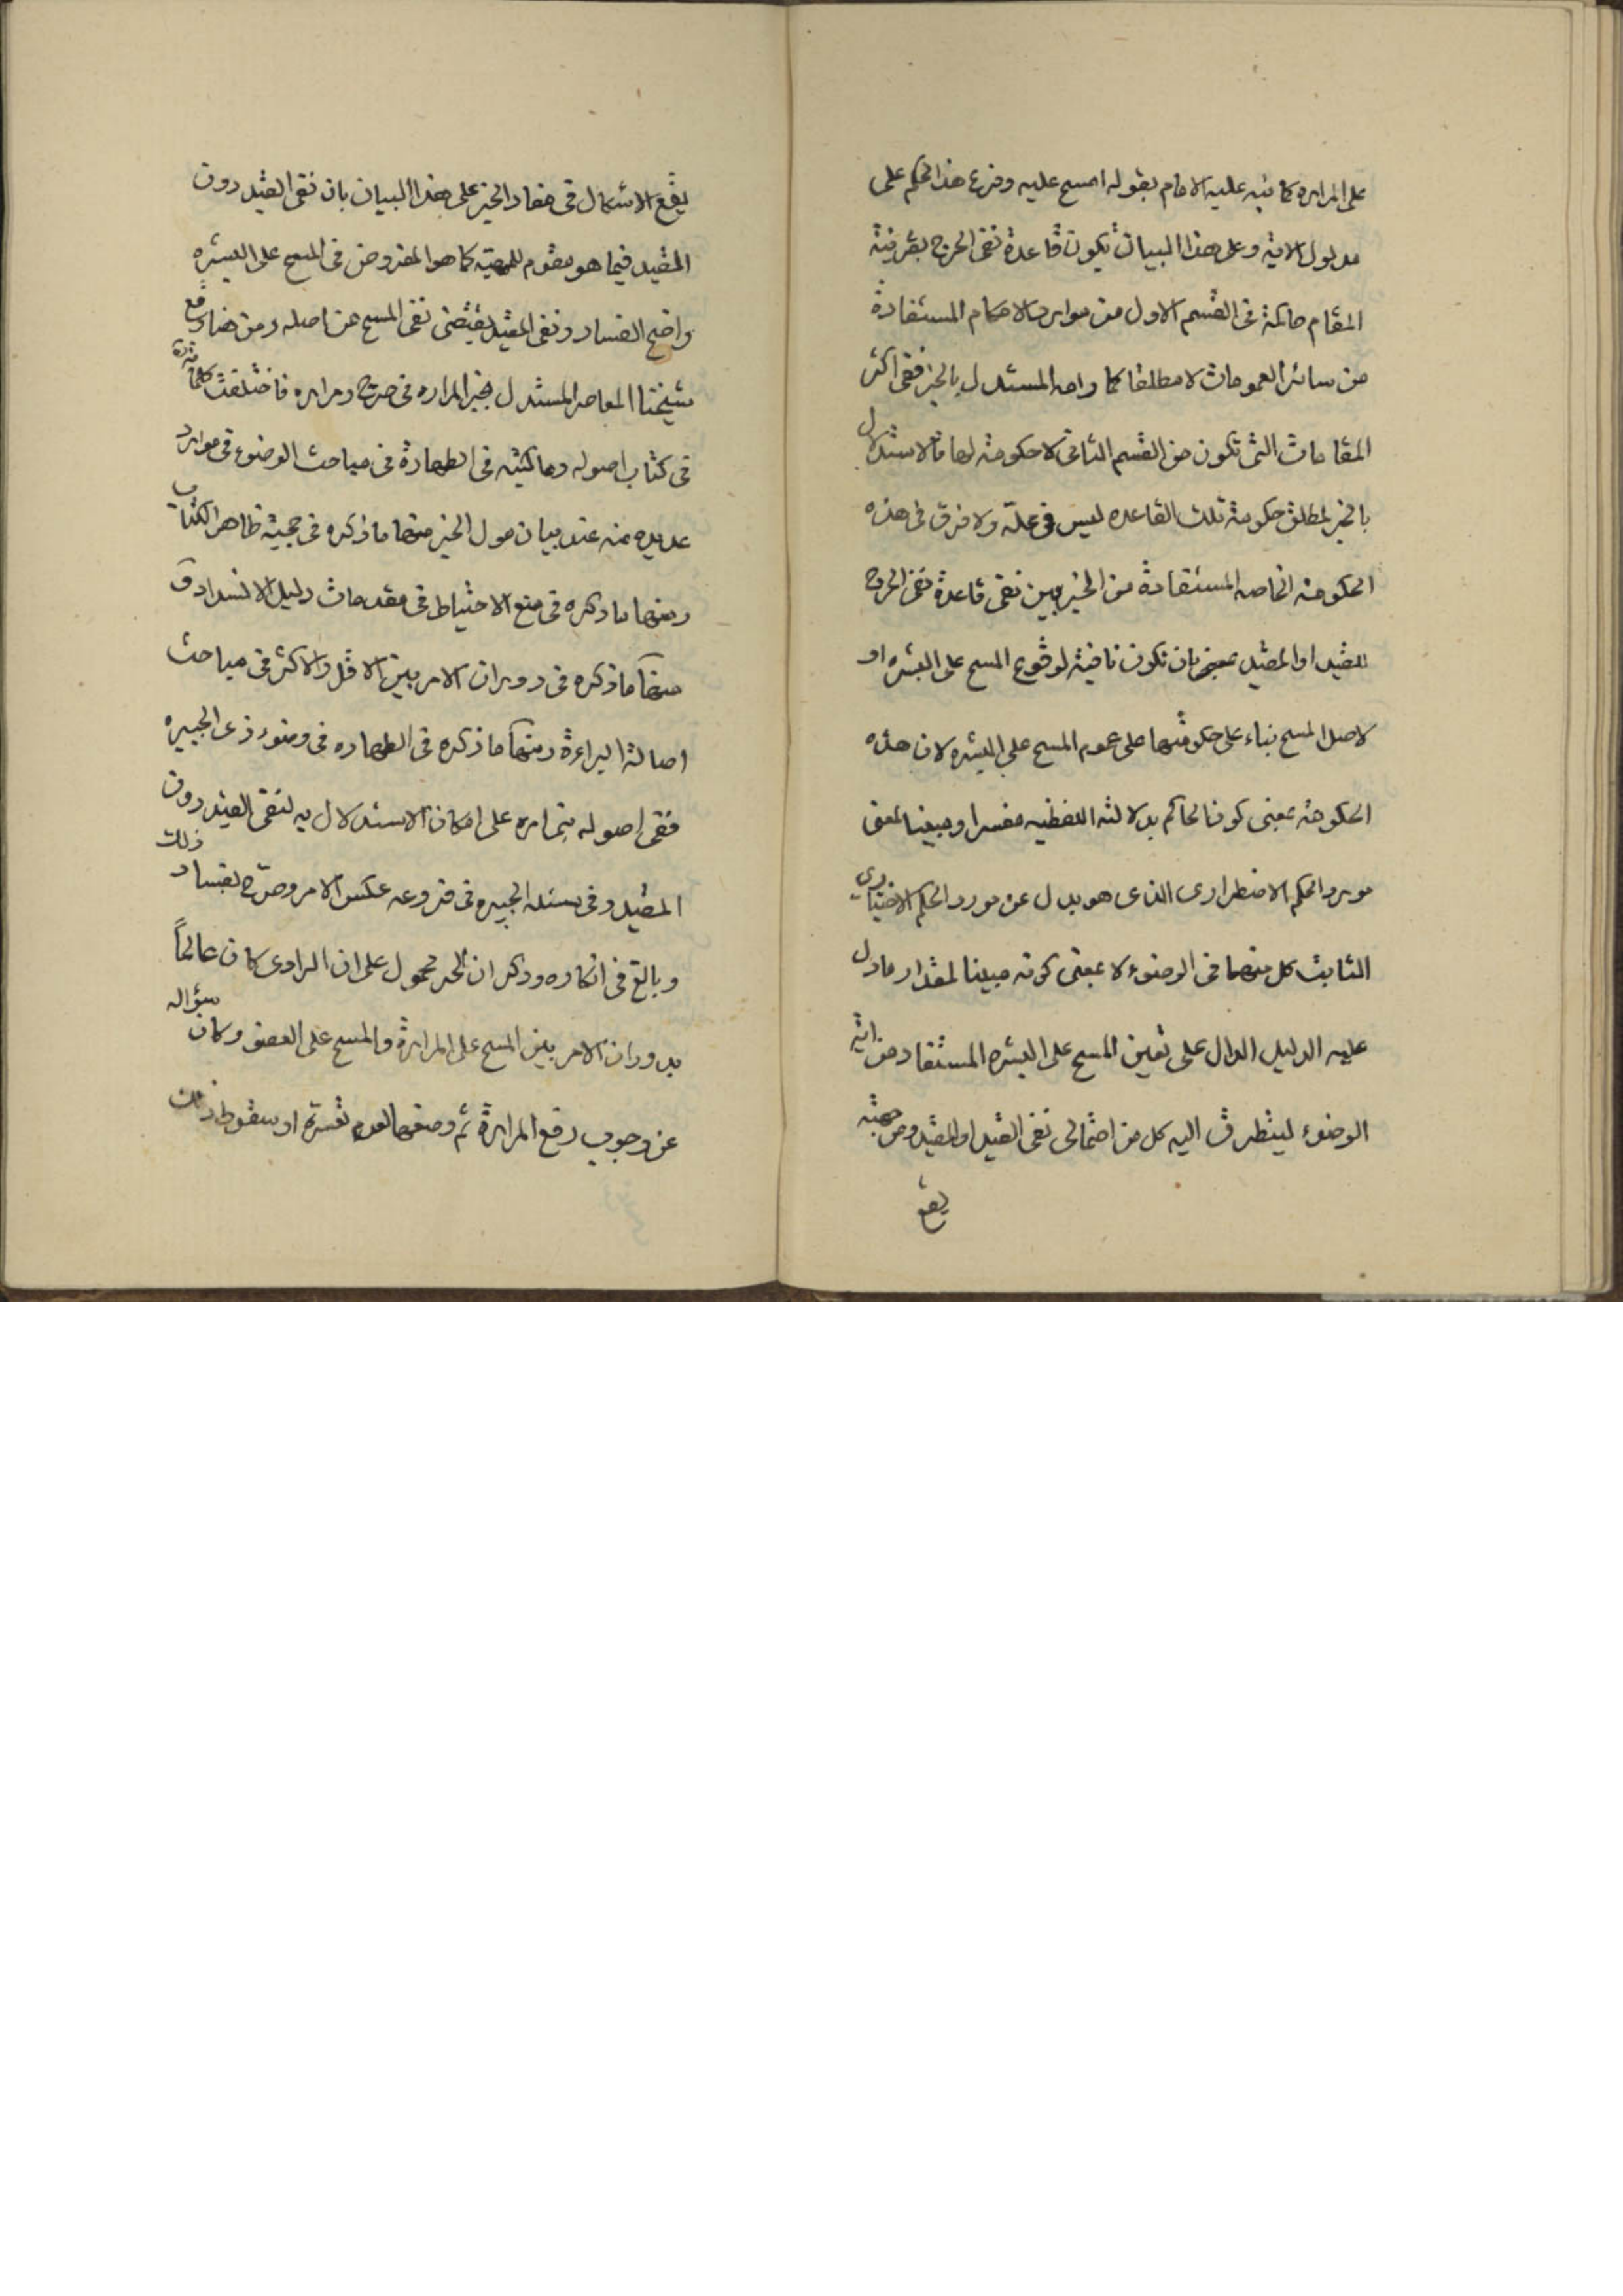 على المراره كما نبه عليه الامام بقوله امسح عليه وفرع هذا الحكم على
مدلول الاية وعلى هذا البيان تكون قاعدة نفى الحرج بقرينة
المقام حاكمة فى القسم الاول من موارد الاحكام المستفادة
من سائر العمومات لا مطلقا كما رامه المستدل بالخبر ففى اكثر
المقامات التى تكون من القسم الثانى لا حكومة لها فالاستدلال
بالخبر لمطلق حكومة تلك القاعده ليس فى محله ولا فرق فى هذه
الحكومة الخاصه المستفادة من الخبر بين نفى قاعدة نفى الحرج
للقيد او المقيد بمعنى بان تكون نافية لوقوع المسح على البشره او
لاصل المسح بناء على حكومتها على عموم المسح على البشره لان هذه
الحكومة بمعنى كون الحاكم بدلالته اللفظيه مفسرا ومبينا
مورد الحكم الاضطرارى الذى هو بدل عن مورد الحكم الاختيارى
الثابت كل منهما فى الوضوء لا بمعنى كونه مبينا لمقدار مادل
عليه الدليل الدال على تعين المسح على البشره المستفاد من اية
الوضوء ليتطرق اليه كل من احتمالى نفى القيد او المقيد ومن جهته
يقع
يقع الاشكال فى مفاد الخبر على هذا البيان بان نفى القيد دون
المقيد فيما هو مقوم للمهية كما هو المفروض فى المسح على البشره
واضح الفساد ونفى المقيد يقتضى نفى المسح عن اصله ومن هنا وقع
شيخنا المعاصر المستدل بخبر المراره فى حرج ومراره فاختلفت كلماته
فى كتاب اصوله وما كتبه فى الطهارة فى مباحث الوضوء فى موارد
عديده منه عند بيان مدلول الخبر منها ما ذكره فى حجية ظاهر الكتاب
ومنها ما ذكره فى منع الاحتياط فى مقدمات دليل الانسداد و
منها ما ذكره فى دوران الامر بين الاقل والاكثر فى مباحث
اصالة البراءة ومنها ما ذكره فى الطهاره فى وضوء ذى الجبيره
ففى اصوله على امكان الاستدلال به لنفى القيد دون
المقيد وفى مسئله الجبيره فى فروعه عكس الامر وصرح بفساد ذلك
وبالغ فى انكاره وذكر ان الخبر محمول على ان الراوى كان عالماً
بدوران الامر بين المسح على المرارة والمسح على العضو وكان سؤاله
عن وجوب رفع المرارة ثم وضعها لعدم تعسره او سقوط ذلك